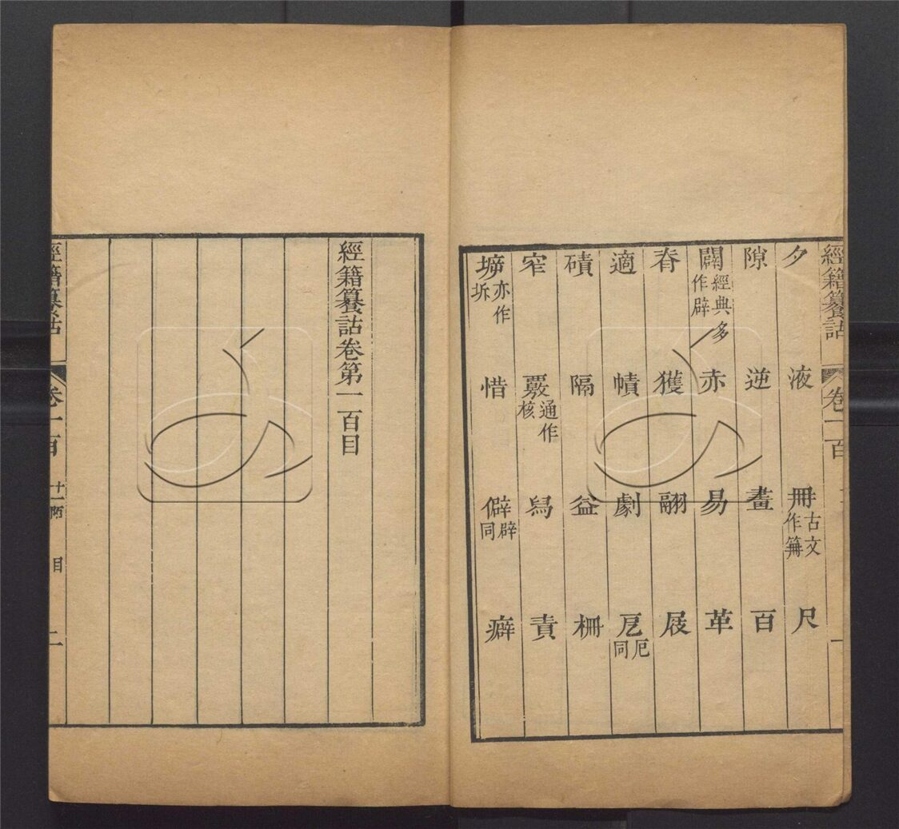 經籍纂詁 卷一百 一
夕 液 冊古文作𥬰 尺
隙 逆 畫 百
闢經典多作辟 赤 易 革
脊 獲 翮 屐
適 幘 劇 戹厄同
磧 隔 益 柵
窄 覈通作核 舄 責
㙤亦作坼 惜 僻辟同 癖
經籍纂詁卷第一百目
經籍纂詁 卷一百 十一陌 目 二